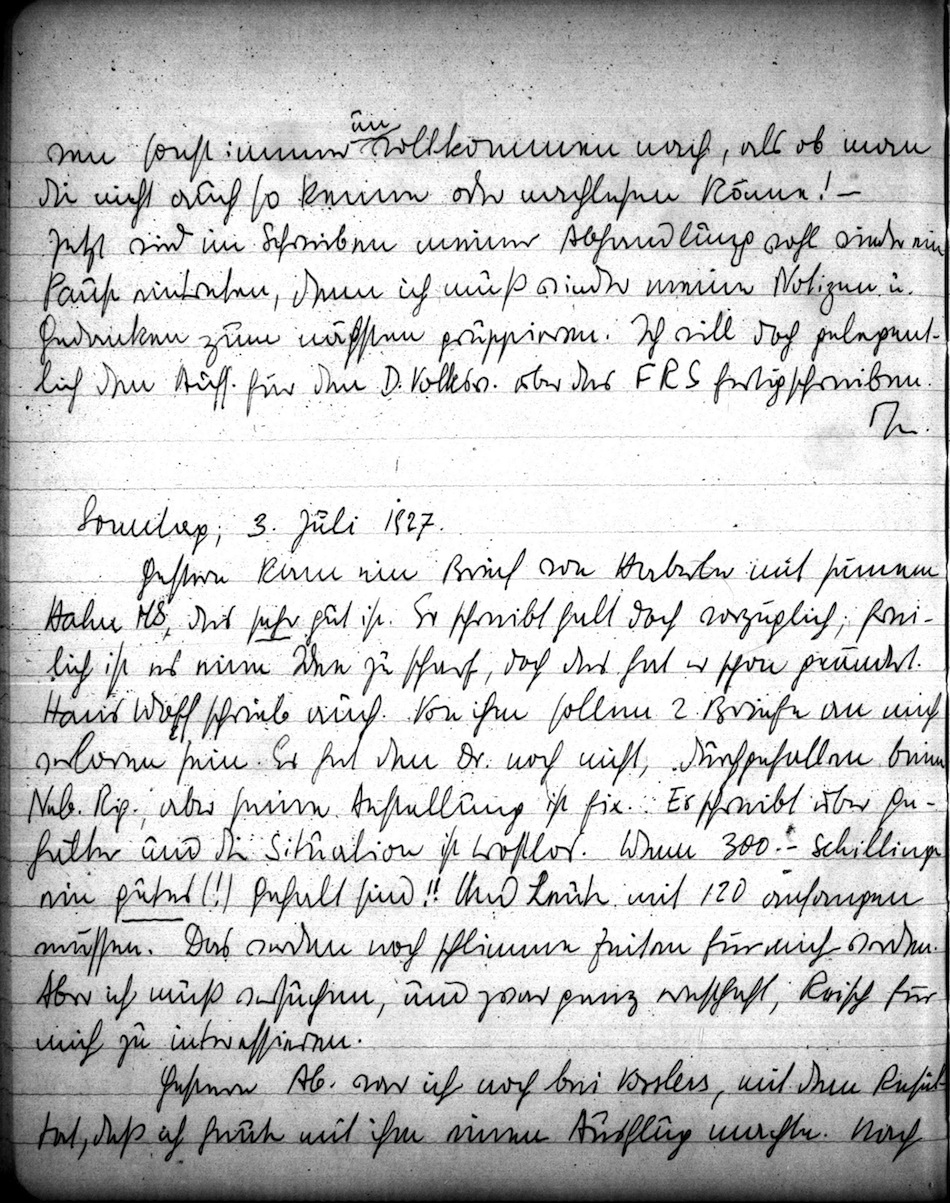 nen sonst immer unvollkommen nach, als ob man
die nicht auch so kenne oder nachlesen könne! –
Jetzt wird im Schreiben meiner Abhandlung wohl wieder eine
Pause eintreten, denn ich muß wieder meine Notizen u.
Gedanken zum nächsten gruppieren. Ich will doch gelegent-
lich den Aufs. für den D. Volksw. über das FRS fertigschreiben.
Sonntag, 3. Juli 1927.
Gestern kam ein Brief von Haberler mit seinem
Hahn MS, das sehr gut ist. Er schreibt halt doch vorzüglich, frei-
lich ist es eine Idee zu scharf, doch das hat er schon geändert.
Hans Wolff schrieb auch. Von ihm sollen 2 Briefe an mich
verloren sein. Er hat den Dr. noch nicht, durchgefallen beim
Neb. Rig., aber seine Anstellung ist fix. Er schreibt über Ge-
hälter und die Situation ist trostlos. Wenn 300.– Schillinge
ein gutes (!) Gehalt sind!! Und Leute mit 120 anfangen
müssen. Das werden noch schlimme Zeiten für mich werden.
Aber ich muß versuchen, und zwar ganz ernsthaft, Reisch für
mich zu interessieren.
Gestern Ab. war ich noch bei Vosslers, mit dem Resul-
tat, daß ich heute mit ihm einen Ausflug machte. Nach